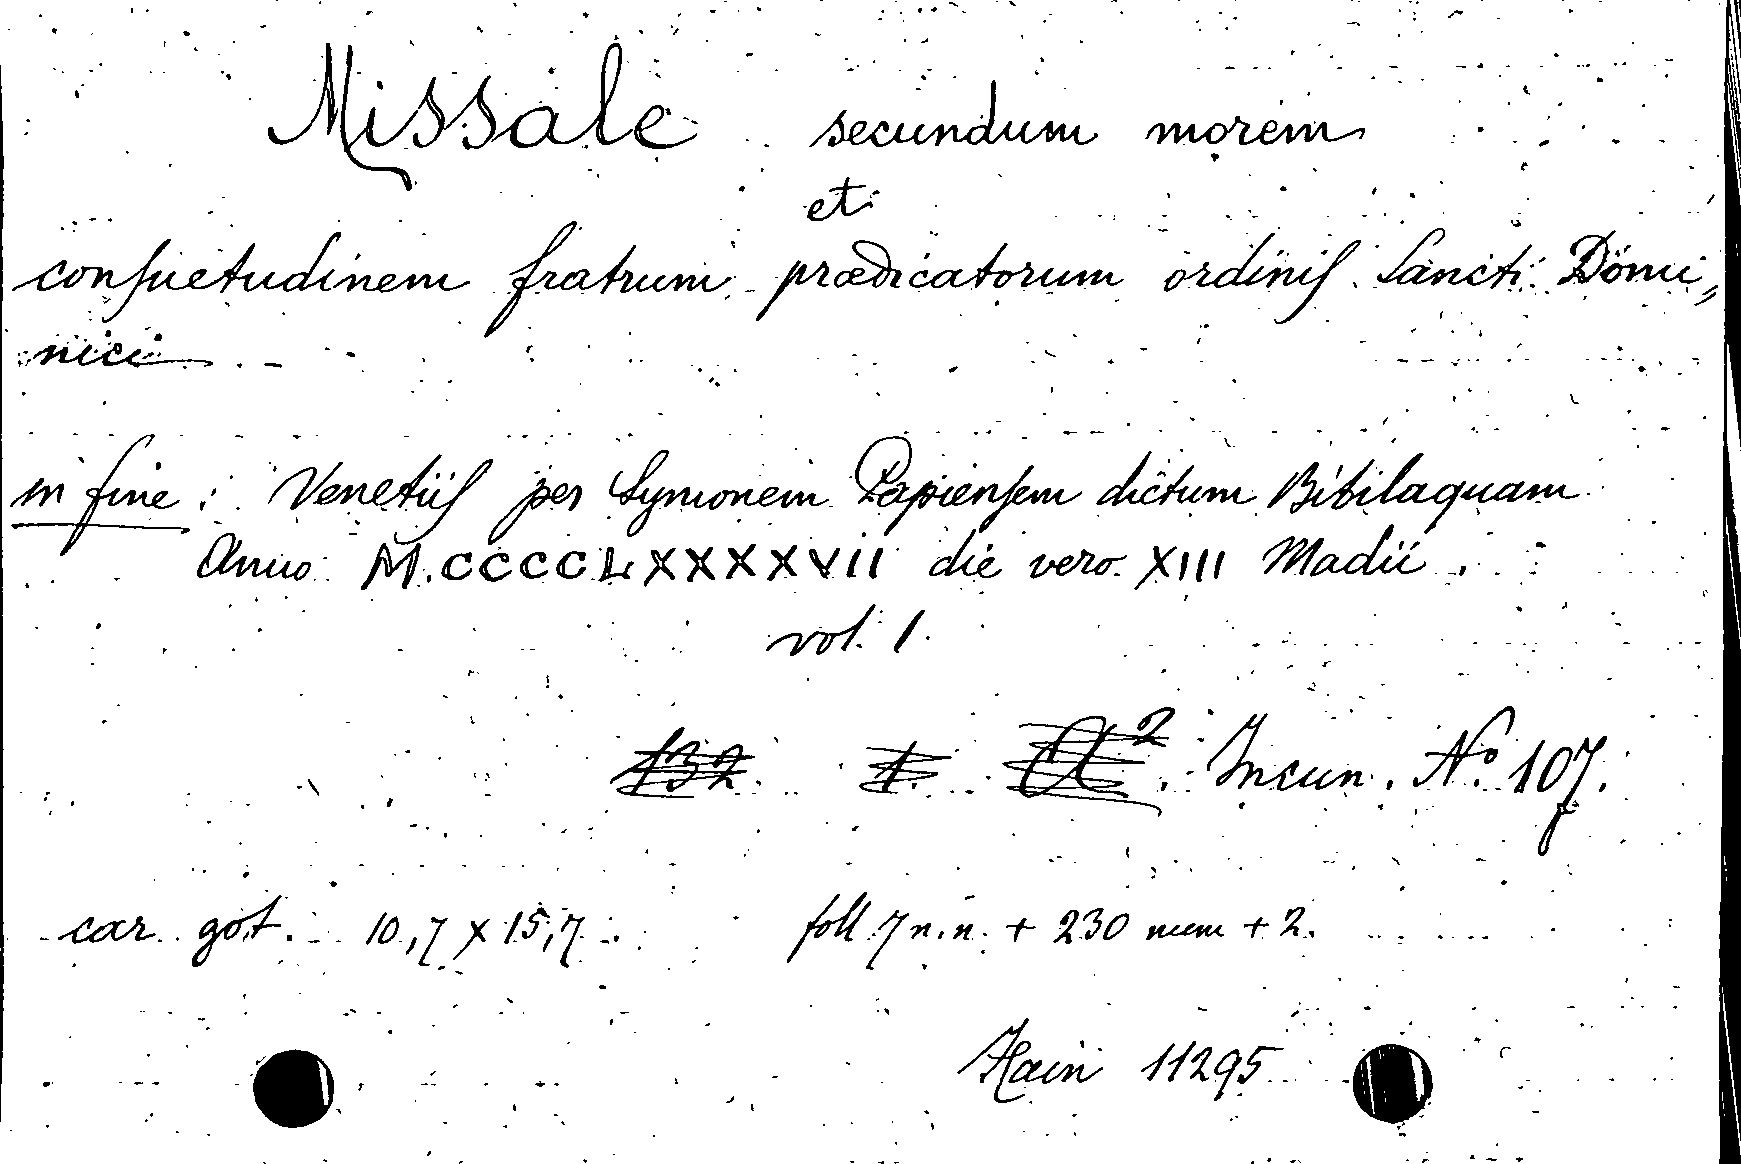 Missale secundum morem
et
conſuetudinem fratrum prædicatorum ordiniſ Sancti Domi„
nici
in fine: Venetiiſ per Symonem Papienſem dictum Bibilaquam
Anno M.CCCCLXXXXVII die vero XIII Madii.
vol. 1.
132. 1. A². Incun. Nº 107.
car got. 10,7 x 15,7. foll 7 n.n. + 230 num + 2.
Hain 11295